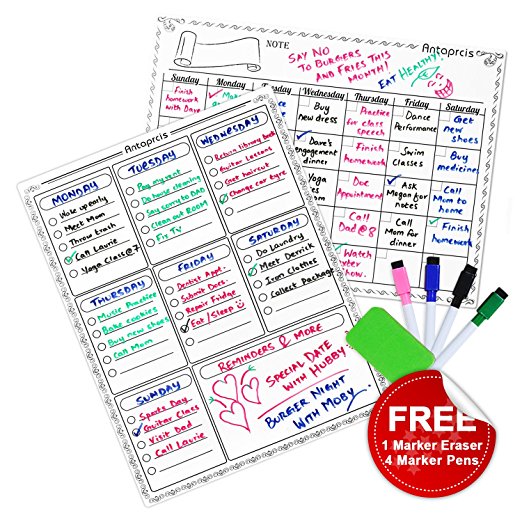 NOTE
Antaprcis
SAY NO
TO BURGERS
AND FRIES THIS
MONTH!
EAT HEALTHY!
Sunday Monday Wednesday Thursday Friday Saturday
Finish
homework
with Dave
Buy
new
dress
Practice
for class
speech
Dance
Performance
Get
new
shoes
Dave's
engagement
dinner
Finish
homework
Swim
Classes
Buy
medicines
Yoga
Doc
Appointment
Ask
Megan for
notes
Call
Mom to
home
Call
Dad@8
Call
Mom for
dinner
Finish
homework
Watch
show
Antaprcis
MONDAY
Wake up early
Meet Mom
Throw trash
Call Laurie
Yoga Class@7
TUESDAY
Pay my rent
Do house cleaning
Say sorry to DAD
Clean out ROOM
Fix TV
WEDNESDAY
Return library book
Guitar Lessons
Get haircut
Change car tyre
THURSDAY
Music Practice
Bake cookies
Buy new shoes
Call Mom
FRIDAY
Dentist Appt.
Submit Docs
Repair Fridge
Eat/Sleep
SATURDAY
Do Laundry
Meet Derrick
Iron Clothes
Collect Package
SUNDAY
Sports Day
Guitar Class
Visit Dad
Call Laurie
REMINDERS & MORE
SPECIAL DATE
WITH HUBBY!
BURGER NIGHT
WITH MOBY.
FREE
1 Marker Eraser
4 Marker Pens